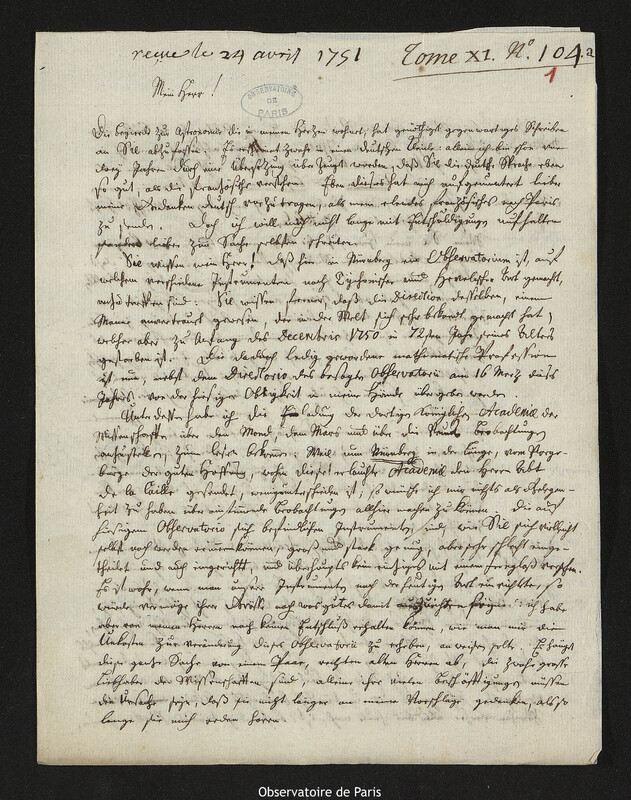 reçue le 24 avril 1751 Tome XI. N.º 104.a
1
Mein Herr!
OBSERVATOIRE DE PARIS
Die Begierde zur Astronomie die in meinem Hertzen wohnet, hat gegenwärtiges Schreiben
an Sie abzufassen. zwahr in einem deutschen allein ich bin schon vor
Jahren durch eine Übersetzung überzeugt worden, daß Sie die deutsche Sprache eben
so gut, als die französische verstehen. Eben dieses hat mich aufgemuntert lieber
meine Gedanken deutsch vorzutragen, als mein elendes französisches nach Paris
zu senden. Doch ich will mich nicht lange mit Entschuldigungen aufhalten
sondern lieber zur Sache selbsten schreiten.
Sie wissen mein Herr! daß hier in Nürnberg ein Observatorium ist, auf
welchem verschiedene Instrumenten nach Tychonischer und Hevelischer Art gemacht,
anzutreffen sind. Sie wissen ferner, daß die Direction desselben, einem
Manne anvertraut gewesen der in der Welt sich sehr bekandt gemacht hat,
welcher aber zu Anfang des Decembris 1750 in 72sten Jahr seines Alters
gestorben ist. Die dadurch ledig gewordene mathematische Profession
ist nun, nebst dem Directorio des besagten Observatorii am 16 Mertz dieses
Jahres von der hiesigen Obrigkeit in meine Hände übergeben worden.
Unterdessen habe ich die Einladung der dortigen Königlichen Academie der
Wissenschafften über den Mond, dem Mars und über die Venus Beobachtungen
anzustellen, zum lesen bekommen. Weil nun Nürnberg in der Länge, vom Vorge-
bürge der guten Hoffnung, wohin diese erlauchte Academie den Herrn Abt
de la Caille gesendet, wenig unterschieden ist; so wünsche ich mir nichts als Gelegen-
heit zu haben übereinstimmende Beobachtungen allhier machen zu können. Die auf
hiesigem Observatorio sich befindlichen Instrumenten, sind, wie Sie sich vielleicht
selbst noch werden erinnern können, groß und stark genug, aber sehr schlecht einge-
theilet und auch eingericht, und überhaupts kein einziges mit einem Fernglaß versehen.
Es ist wahr, wenn man unsere Instrumente nach der heutigen Art einrichtete, so
würde vermöge ihrer Größe noch was gutes damit auszurichten seyn: ich habe
aber von meinen Herren noch keinen Entschluß erhalten können, wie man mir die
Unkosten zur Veränderung dieses Observatorii zu erheben, anweisen solte. Es hängt
diese gantze Sache von einem Paar, reichen alten Herren ab, die zwahr große
Liebhaber der Wissenschafften sind, alleine ihre vielen Beschäfftigungen müssen
die Ursache seyn, daß sie nicht länger an meine Vorschläge gedenken, als so
lange sie mich reden hören.
Observatoire de Paris